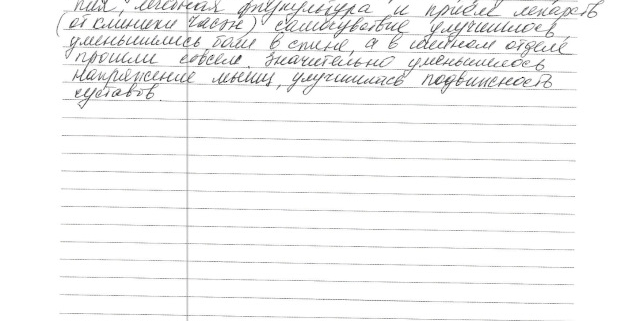 пия, лечебная физкультура и прием лекарств
(от клиники части) самочувствие улучшилось,
уменьшились боли в спине, а в шейном отделе
прошли совсем. Значительно уменьшилось
напряжение мышц, улучшилась подвижность
суставов.